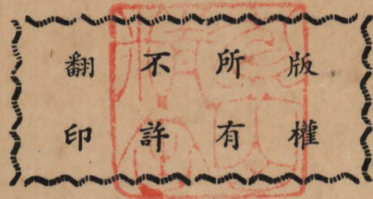 版權
所有
不許
翻印